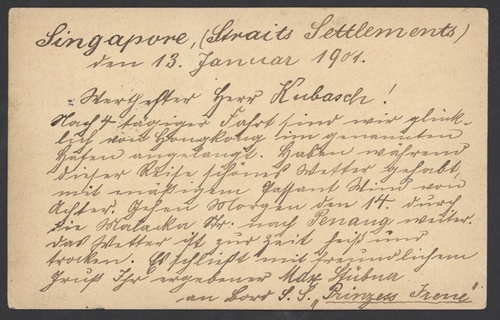 Singapore, (Straits Settlements)
den 13. Januar 1901.
Werthester Herr Kubasch!
Nach 4 tägiger Fahrt sind wir glück-
lich von Hongkong im genannten
Hafen angelangt. Haben während
dieser Reise schönes Wetter gehabt,
mit mäßigem Passant Wind von
Achter. Gehen Morgen den 14. durch
die Malacka Str: nach Penang weiter.
Das Wetter ist zur Zeit heiß und
trocken. Es schließt mit freundlichem
Gruß Ihr ergebener Max
an Bord S. S. „Prinzess Irene"